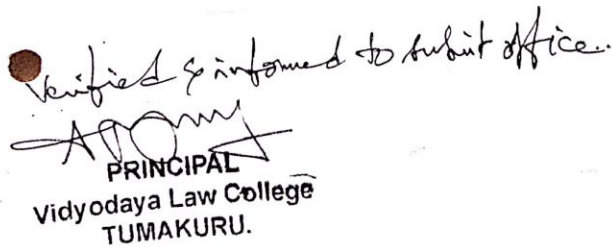 Verified & informed to submit office..
PRINCIPAL
Vidyodaya Law College
TUMAKURU.